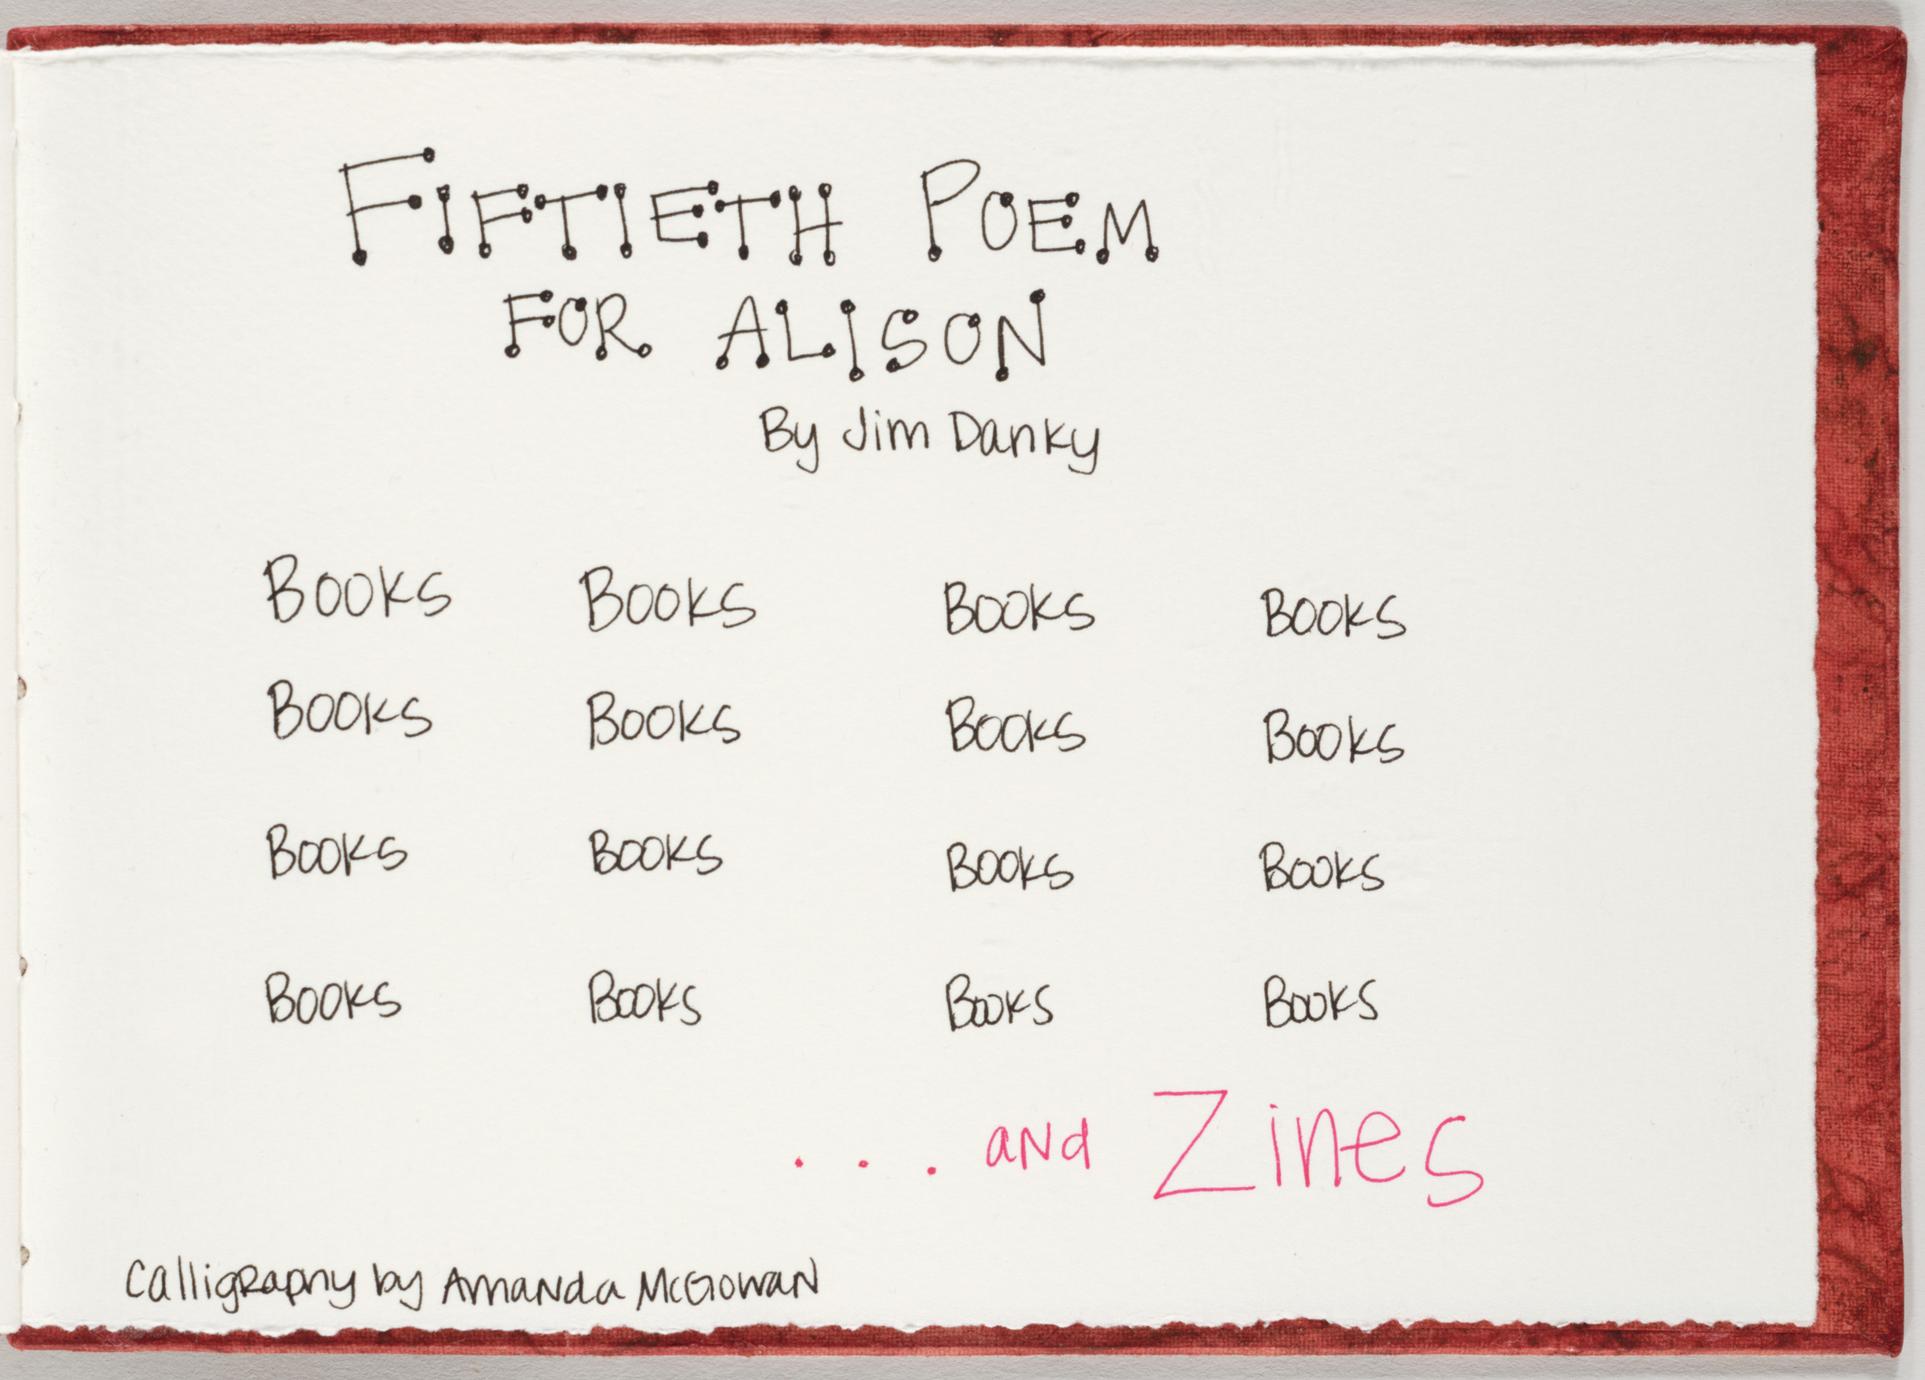 FIFTIETH POEM
FOR ALISON
By Jim Danky
Books Books Books Books
Books Books Books Books
Books Books Books Books
Books Books Books Books
. . . and Zines
Calligraphy by Amanda McGowan